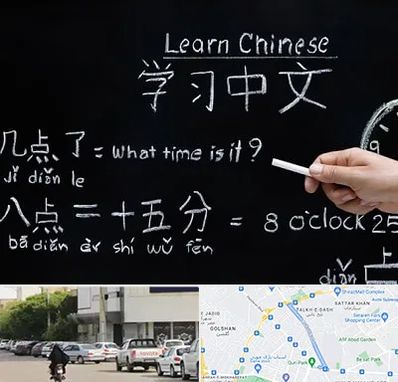 Learn Chinese
学习中文
几点了 = What time is it?
jǐ diǎn le
八点二十五分 = 8 o'clock 25
bā diǎn èr shí wǔ fēn
diǎn 上
9
TOYOTA
Shiraz Mall Complex
SATTAR KHAN
TALKH-E-DASH
Setareh Fars Shopping Center
GOLSHAN
Afif Abad Garden
Quri Park
Besat Park